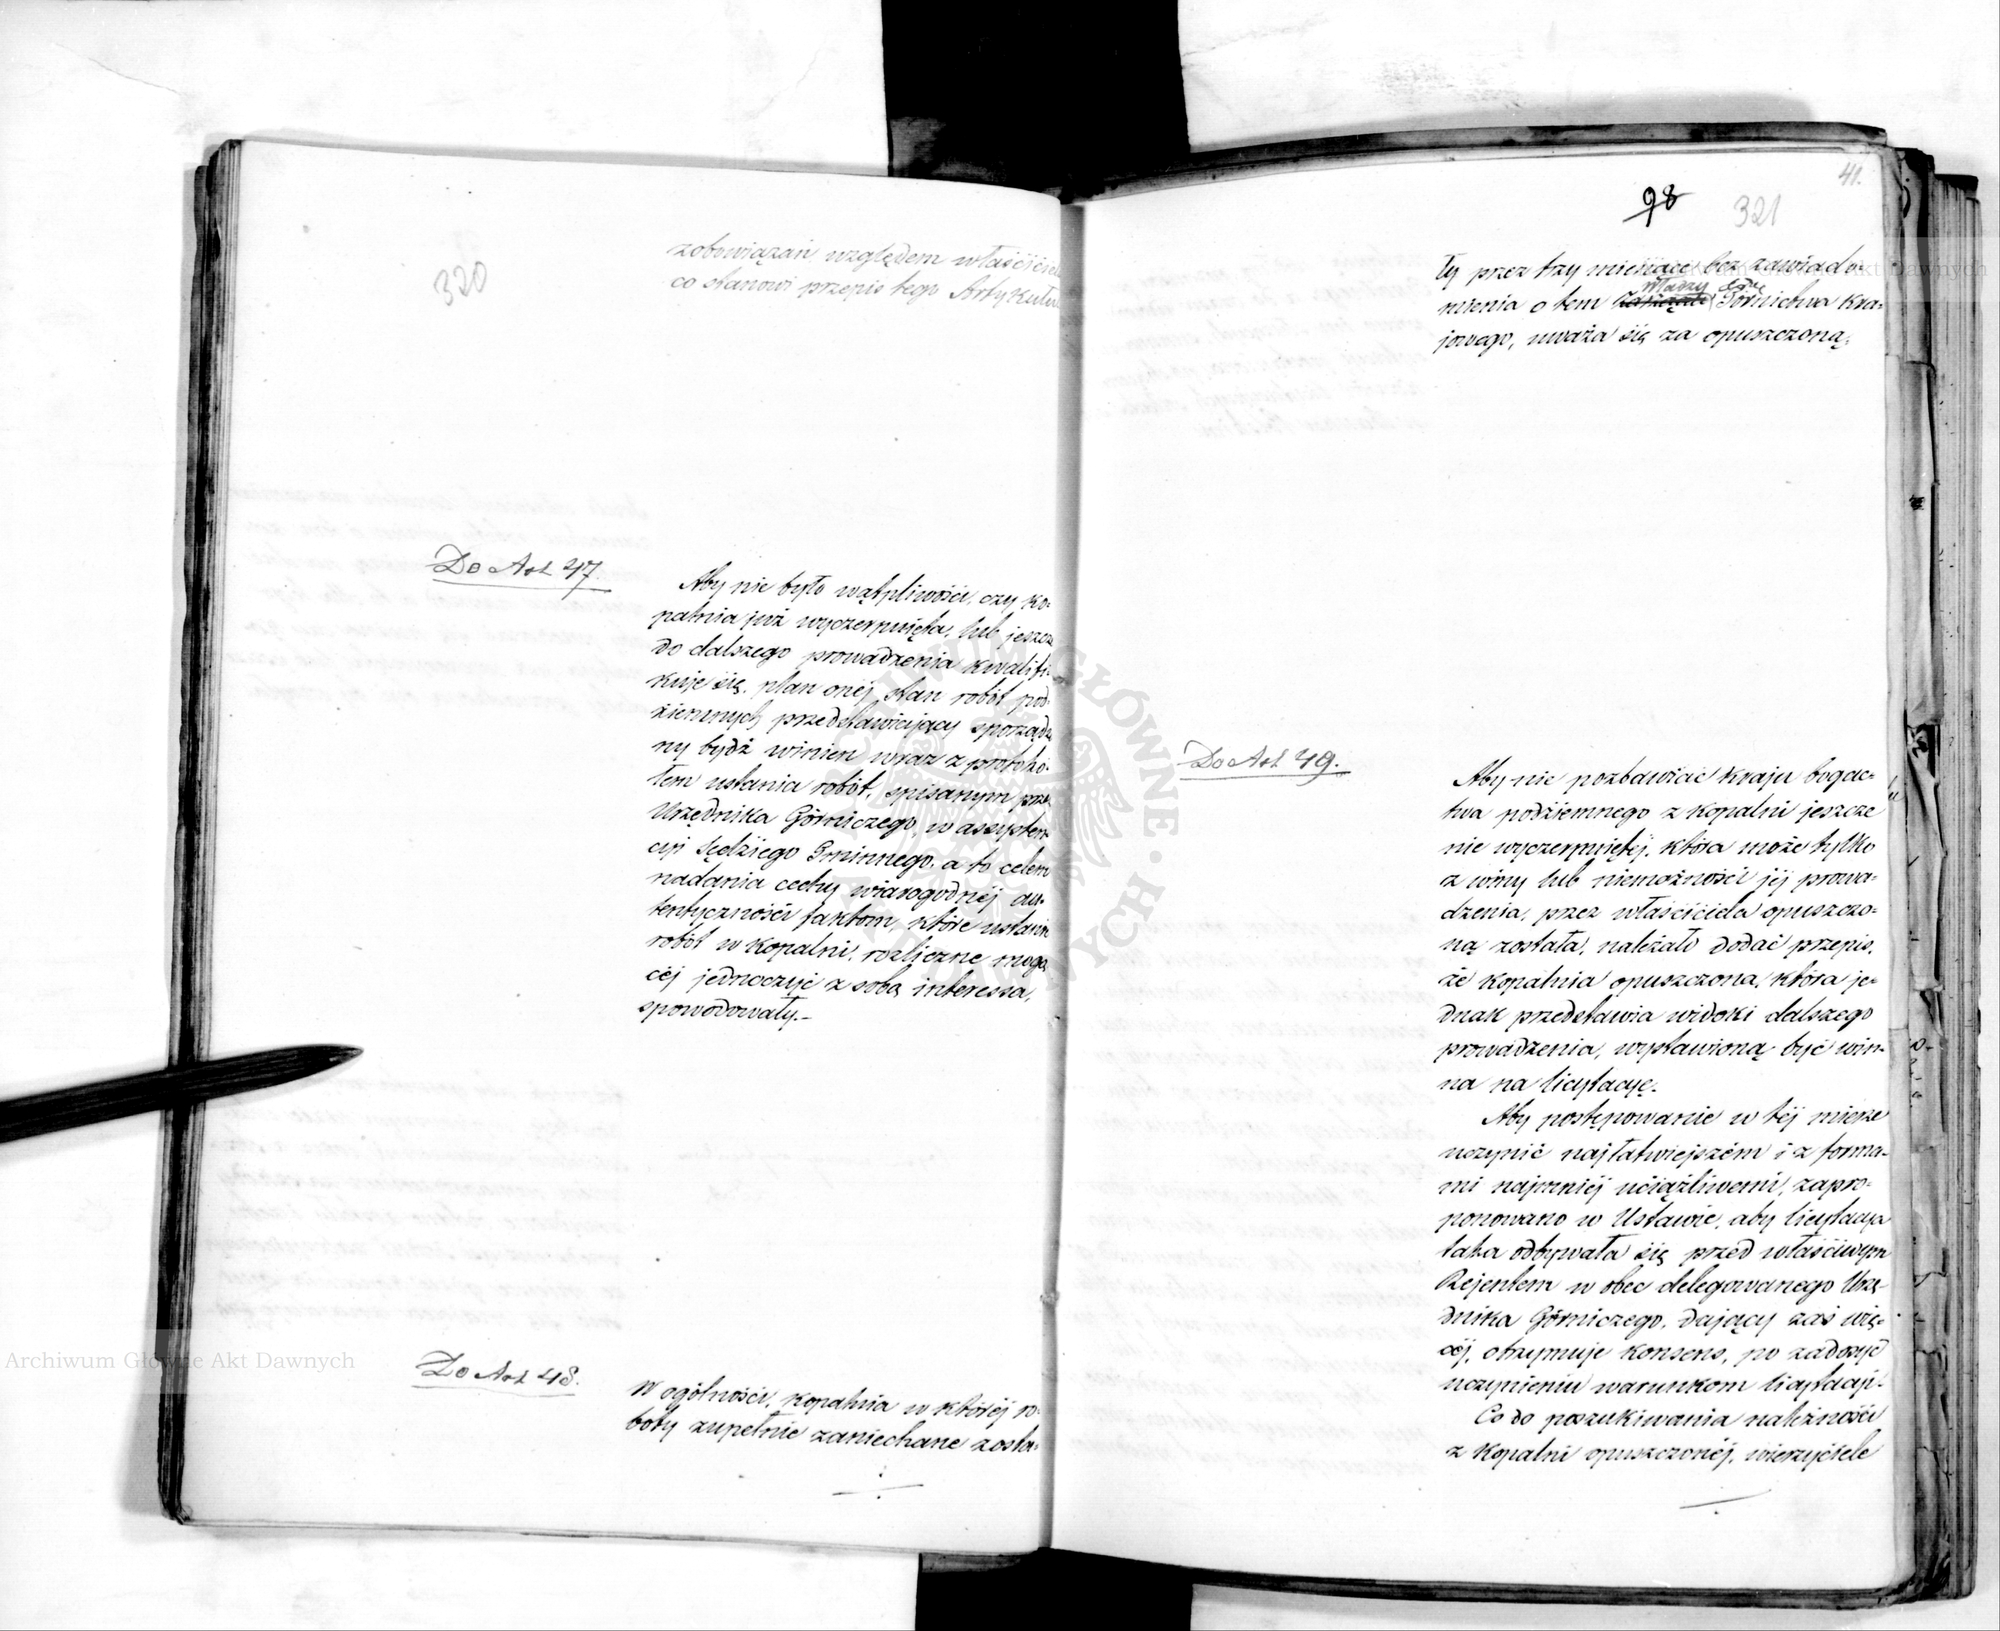 320
zobowiązań względem właściciela
co stanowi przepis tego Artykułu
Do Art 47.
Aby nie było wątpliwości, czy ko-
palnia już wyczerpnięta, lub jeszcze
do dalszego prowadzenia kwalifi-
kuje się, plan onéj stan robót pod-
ziemnych przedstawiający sporządzo
ny bydź winien wraz z protokó-
łem ustania robót, spisanym prze
Urzędnika Górniczego, w assysten-
cyi Sędziego Gminnego, a to celem
nadania cechy wiarogodnéj au-
tentyczności faktom, które ustanie
robót w kopalni, rozliczne mogą
céj jednoczyć z sobą interessa,
spowodowały.–
Do Art 48.
W ogólności, kopalnia w któréj ro-
boty zupełnie zaniechane zosta-
41.
98
321
ły przez trzy miesiące bez zawiado-
władzy
mienia o tem Górnictwa kra-
jowego, uważa się za opuszczoną.
Do Art 49.
Aby nie pozbawiać kraju bogac-
twa podziemnego z kopalni jeszcze
nie wyczerpniętéj, która może tylko
z winy lub niemożności jéj prowa-
dzenia, przez właściciela opuszczo-
ną została, należało dodać przepis,
że kopalnia opuszczona, która je-
dnak przedstawia widoki dalszego
prowadzenia, wystawioną być win-
na na licytacyę.
Aby postępowanie w téj mierze
uczynić najłatwiejszém i z forma-
mi najmniéj uciążliwemi, zapro-
ponowano w Ustawie, aby licytacya
taka odbywała się przed właściwym
Rejentem w obec delegowanego Urzę-
dnika Górniczego, dający zaś wię-
céj, otrzymuje konsens, po zadosyć
uczynieniu warunkom licytacyi.
Co do poszukiwania należności
z kopalni opuszczonéj, wierzyciele
Archiwum Główne Akt Dawnych